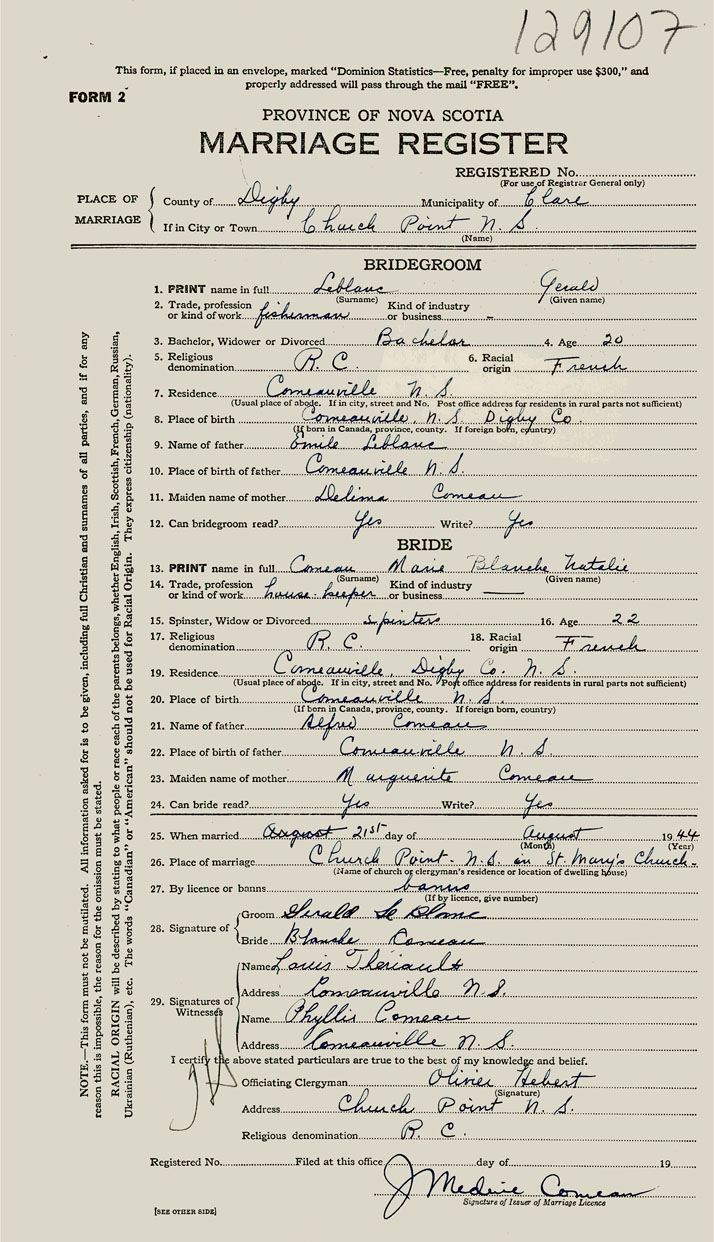 129107
This form, if placed in an envelope, marked "Dominion Statistics—Free, penalty for improper use $300," and
properly addressed will pass through the mail "FREE".
FORM 2
PROVINCE OF NOVA SCOTIA
MARRIAGE REGISTER
REGISTERED No.
(For use of Registrar General only)
PLACE OF MARRIAGE
County of Digby Municipality of Clare
If in City or Town Church Point N. S.
(Name)
BRIDEGROOM
1. PRINT name in full Leblanc Gerald
(Surname) (Given name)
2. Trade, profession or kind of work fisherman Kind of industry or business –
3. Bachelor, Widower or Divorced Bachelor 4. Age 20
5. Religious denomination R. C. 6. Racial origin French
7. Residence Comeauville N. S.
(Usual place of abode. If in city, street and No. Post office address for residents in rural parts not sufficient)
8. Place of birth Comeauville, N. S. Digby Co.
(If born in Canada, province, county. If foreign born, country)
9. Name of father Emile Leblanc
10. Place of birth of father Comeauville N. S.
11. Maiden name of mother Delima Comeau
12. Can bridegroom read? Yes Write? Yes
BRIDE
13. PRINT name in full Comeau Marie Blanche Natalie
(Surname) (Given name)
14. Trade, profession or kind of work house-keeper Kind of industry or business —
15. Spinster, Widow or Divorced spinters 16. Age 22
17. Religious denomination R. C. 18. Racial origin French
19. Residence Comeauville, Digby Co. N. S.
(Usual place of abode. If in city, street and No. Post office address for residents in rural parts not sufficient)
20. Place of birth Comeauville N. S.
(If born in Canada, province, county. If foreign born, country)
21. Name of father Alfred Comeau
22. Place of birth of father Comeauville N. S.
23. Maiden name of mother Marguerite Comeau
24. Can bride read? Yes Write? Yes
25. When married August 21st day of August 1944
(Month) (Year)
26. Place of marriage Church Point - N. S. in St. Mary's Church -
(Name of church or clergyman's residence or location of dwelling house)
27. By licence or banns banns
(If by licence, give number)
28. Signature of
Groom Gerald Le Blanc
Bride Blanche Comeau
29. Signatures of Witnesses
Name Louis Theriault
Address Comeauville N. S.
Name Phyllis Comeau
Address Comeauville N. S.
I certify the above stated particulars are true to the best of my knowledge and belief.
Officiating Clergyman Olivier Hebert
(Signature)
Address Church Point N. S.
Religious denomination R. C.
Registered No. Filed at this office day of 19
J Medine Comeau
Signature of Issuer of Marriage Licence
[SEE OTHER SIDE]
NOTE.—This form must not be mutilated. All information asked for is to be given, including full Christian and surnames of all parties, and if for any
reason this is impossible, the reason for the omission must be stated.
RACIAL ORIGIN will be described by stating to what people or race each of the parents belongs, whether English, Irish, Scottish, French, German, Russian,
Ukrainian (Ruthenian), etc. The words "Canadian" or "American" should not be used for Racial Origin. They express citizenship (nationality).